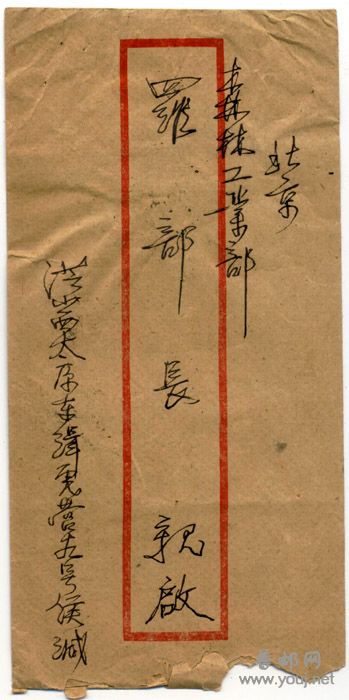 北京
森林工業部
羅部長 親啟
山西太原东缉虎营五号侯缄
春邮网
www.youj.net